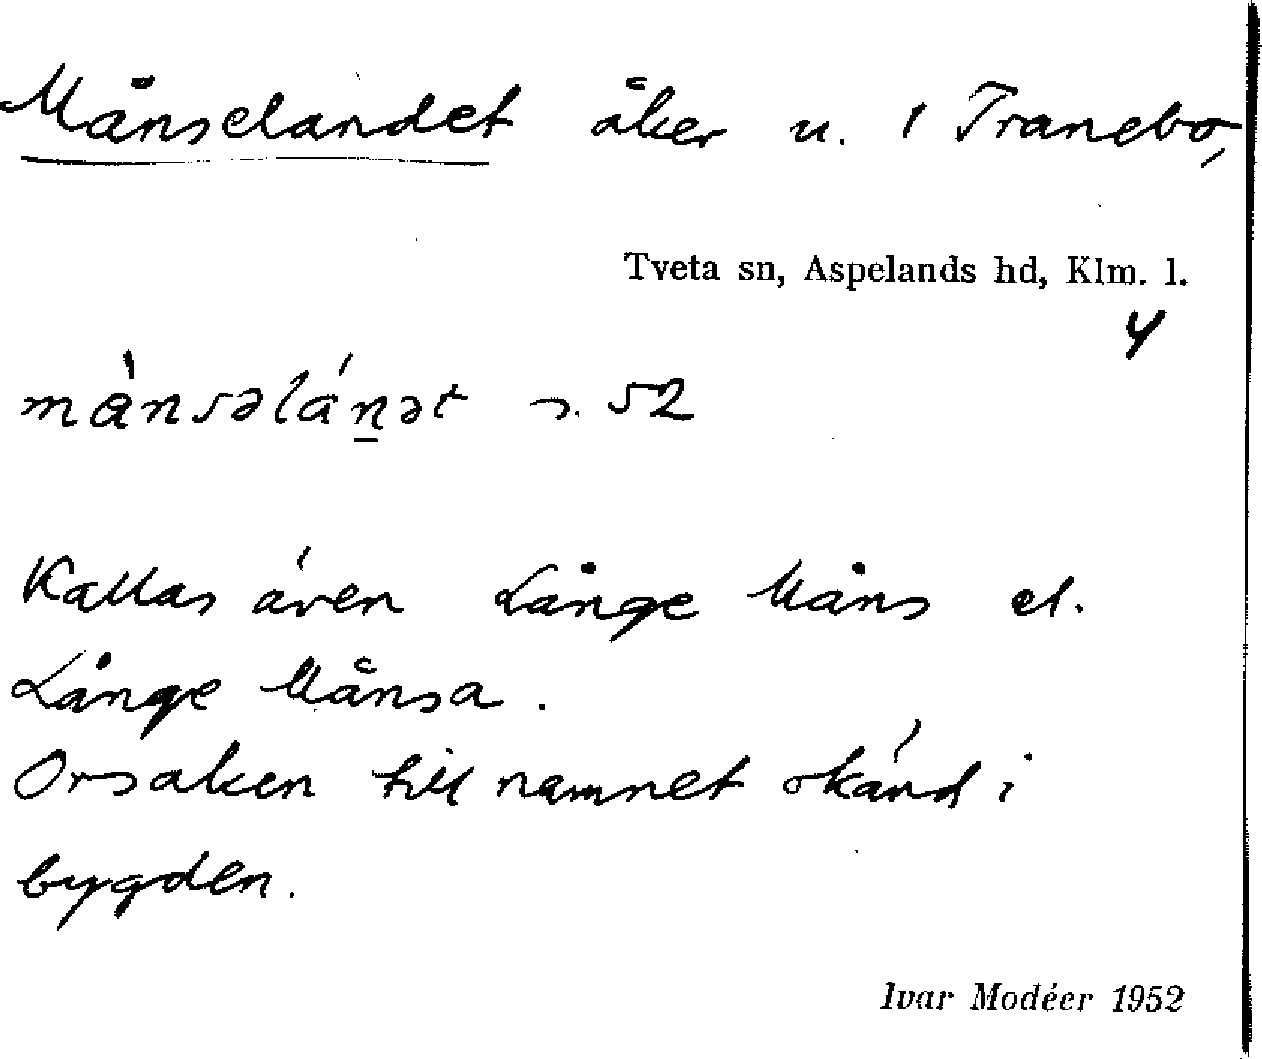 Månselandet åker u. / Tranebo,
Tveta sn, Aspelands hd, Klm. l.
4
månsəlánət s. 52
Kallas även Långe Måns el.
Långe Månsa.
Orsaken till namnet okänd i
bygden.
Ivar Modéer 1952